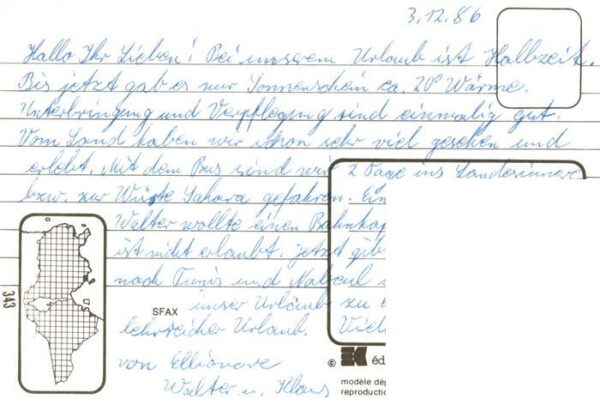 3.12.86
Hallo Ihr Lieben! Bei unserem Urlaub ist Halbzeit.
Bis jetzt gab es nur Sonnenschein ca. 20° Wärme.
Unterbringung und Verpflegung sind einmalig gut.
Vom Land haben wir schon sehr viel gesehen und
erlebt. Mit dem Bus sind wir 2 Tage ins Landesinnere
bzw. zur Wüste Sahara gefahren. Ein
Walter wollte einen Bahnhof
ist nicht erlaubt. jetzt gib
nach Tunis und Nabeul
unser Urlaub zu
lehrreicher Urlaub. Viel
von
Walter u. Klaus
343
SFAX
© EK éd
modèle dép
reproductio